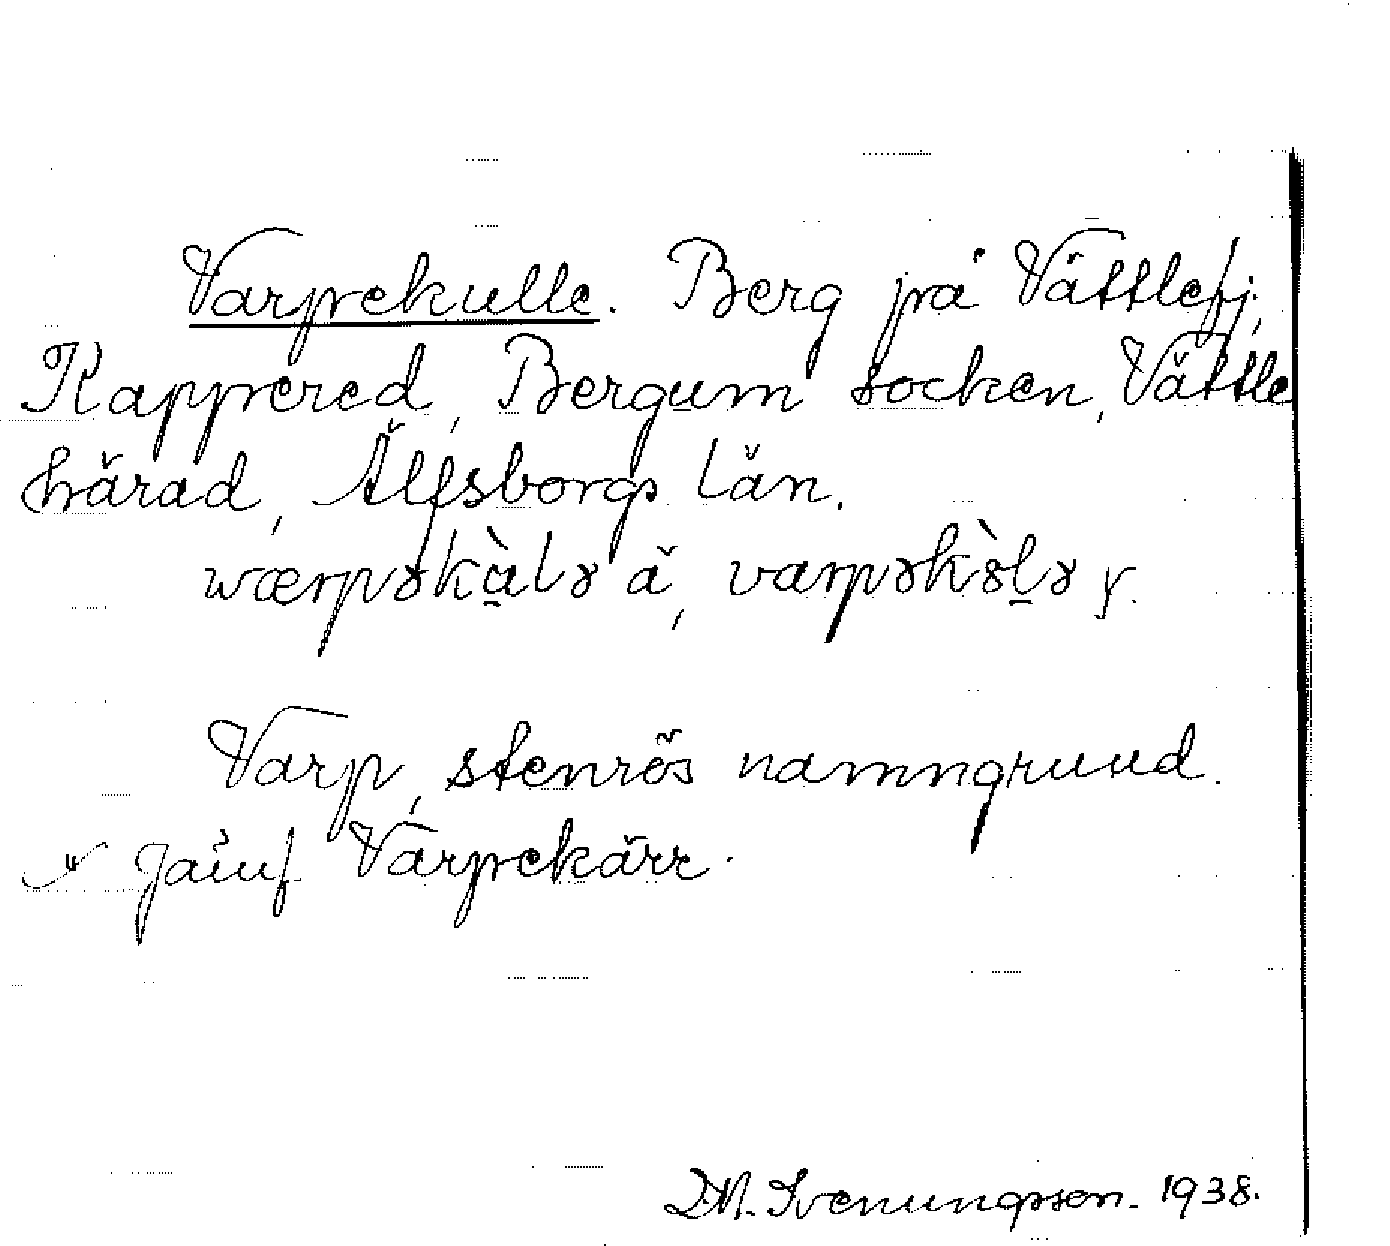 Varpekulle. Berg på Vättlefj.,
Kappered, Bergum socken, Vättle
härad, Älfsborgs län.
wærpəkàlə ä, varpəkòlə y.
Varp, stenrös namngrund.
Jämf Varpekärr.
D.M. Svenungsson. 1938.